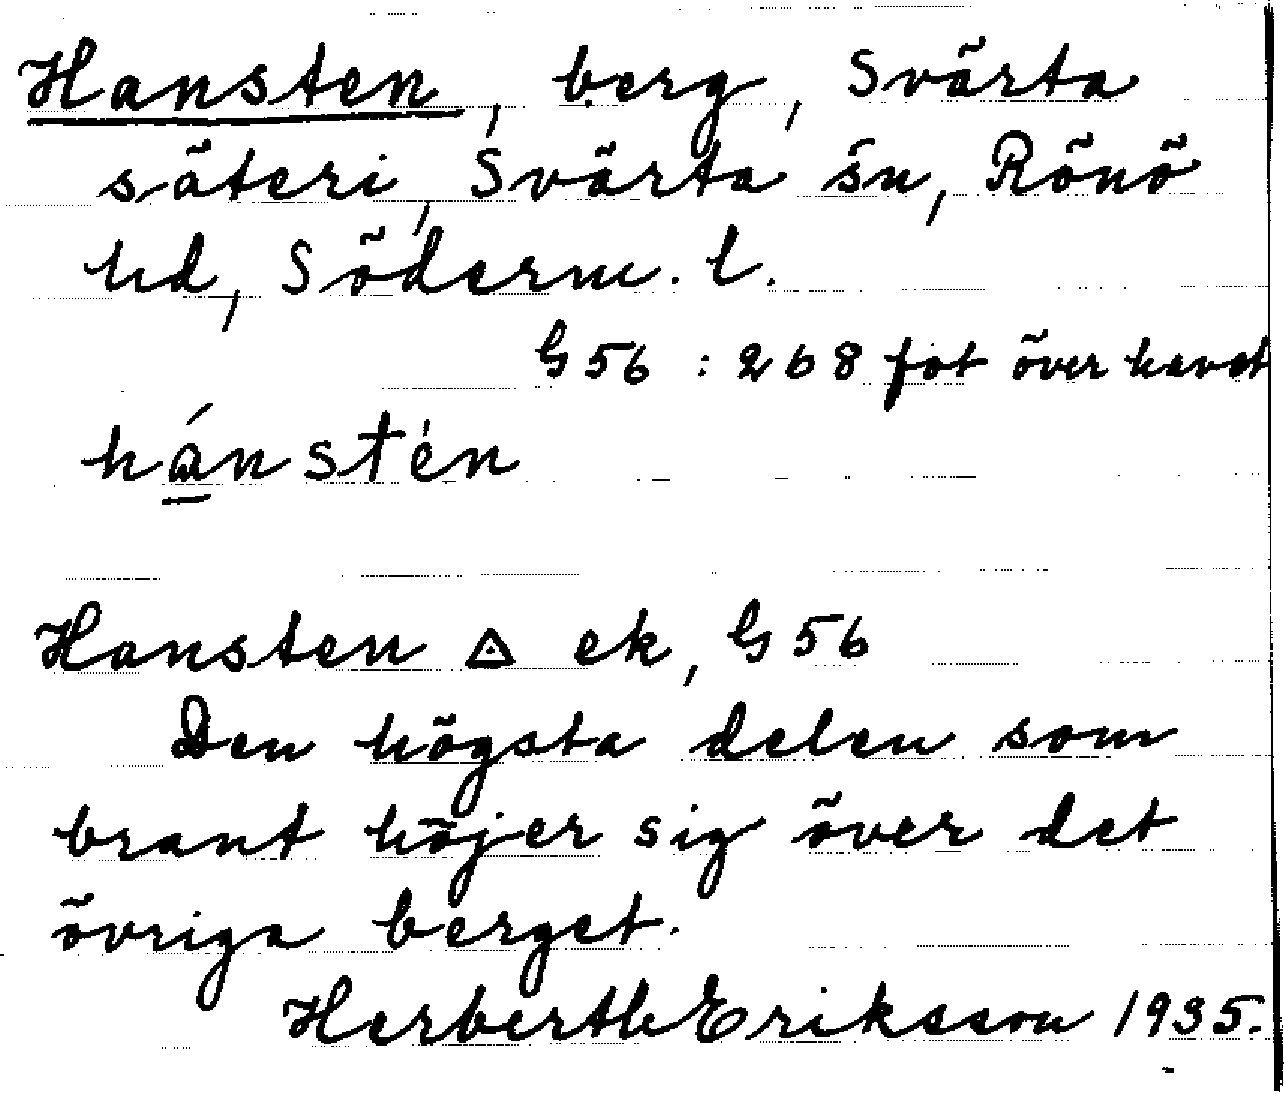 Hansten, berg, Svärta
säteri, Svärta sn, Rönö
hd, Söderm. l.
G 56 : 268 fot över havet
hánstèn
Hansten △ ek, G 56
Den högsta delen som
brant höjer sig över det
övriga berget.
Herberth Eriksson 1935.